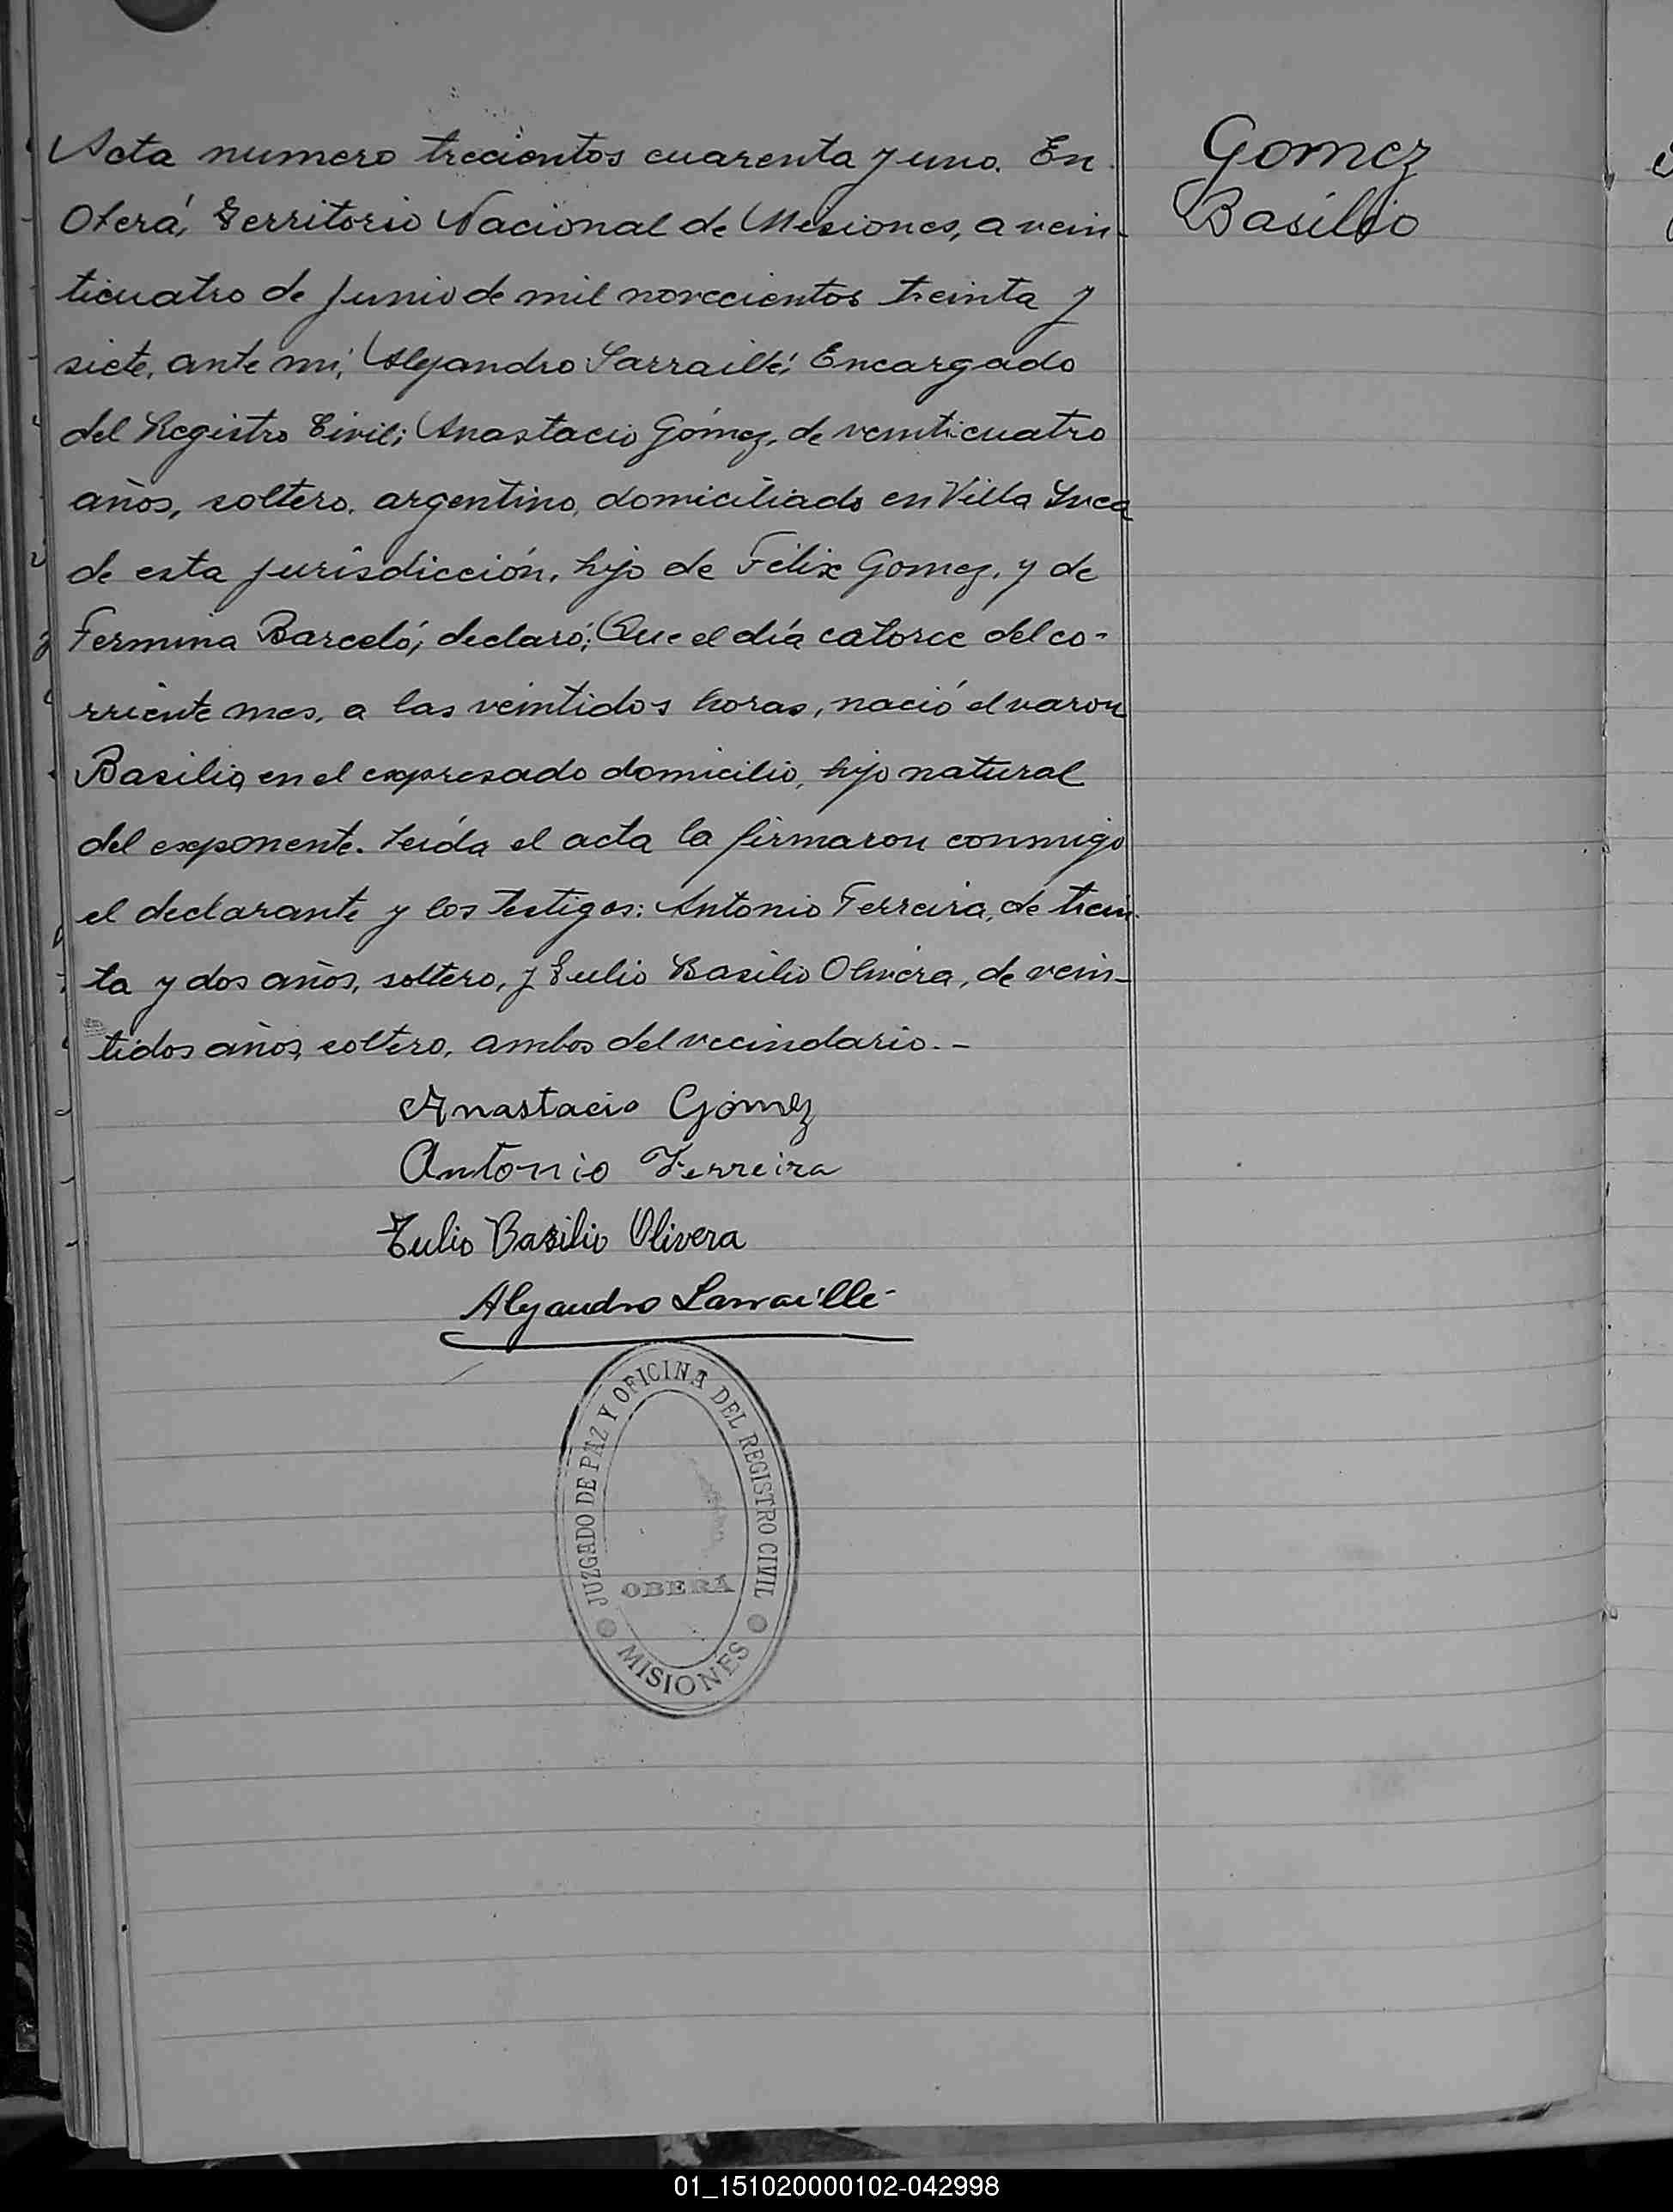 Acta numero trecientos cuarenta y uno. En
Oberá, Territorio Nacional de Misiones, a vein-
ticuatro de Junio de mil novecientos treinta y
siete, ante mi, Alejandro Larraillé, Encargado
del Registro Civil; Anastacio Gómez, de venticuatro
años, soltero, argentino, domiciliado en Villa
de esta jurisdicción, hijo de Félix Gomez, y de
Fermina Barceló; declaró: Que el día catorce del co-
rriente mes, a las veintidos horas, nació el varon
Basilio, en el expresado domicilio, hijo natural
del exponente. Leída el acta la firmaron conmigo
el declarante y los testigos: Antonio Ferreira, de trein-
ta y dos años, soltero, y Tulio Basilio Olivera, de vein-
tidos años, soltero, ambos del vecindario.-
Anastacio Gómez
Antonio Ferreira
Tulio Basilio Olivera
Alejandro Larraillé
JUZGADO DE PAZ Y OFICINA DEL REGISTRO CIVIL
OBERÁ
MISIONES
Gomez
Basilio
01_151020000102-042998